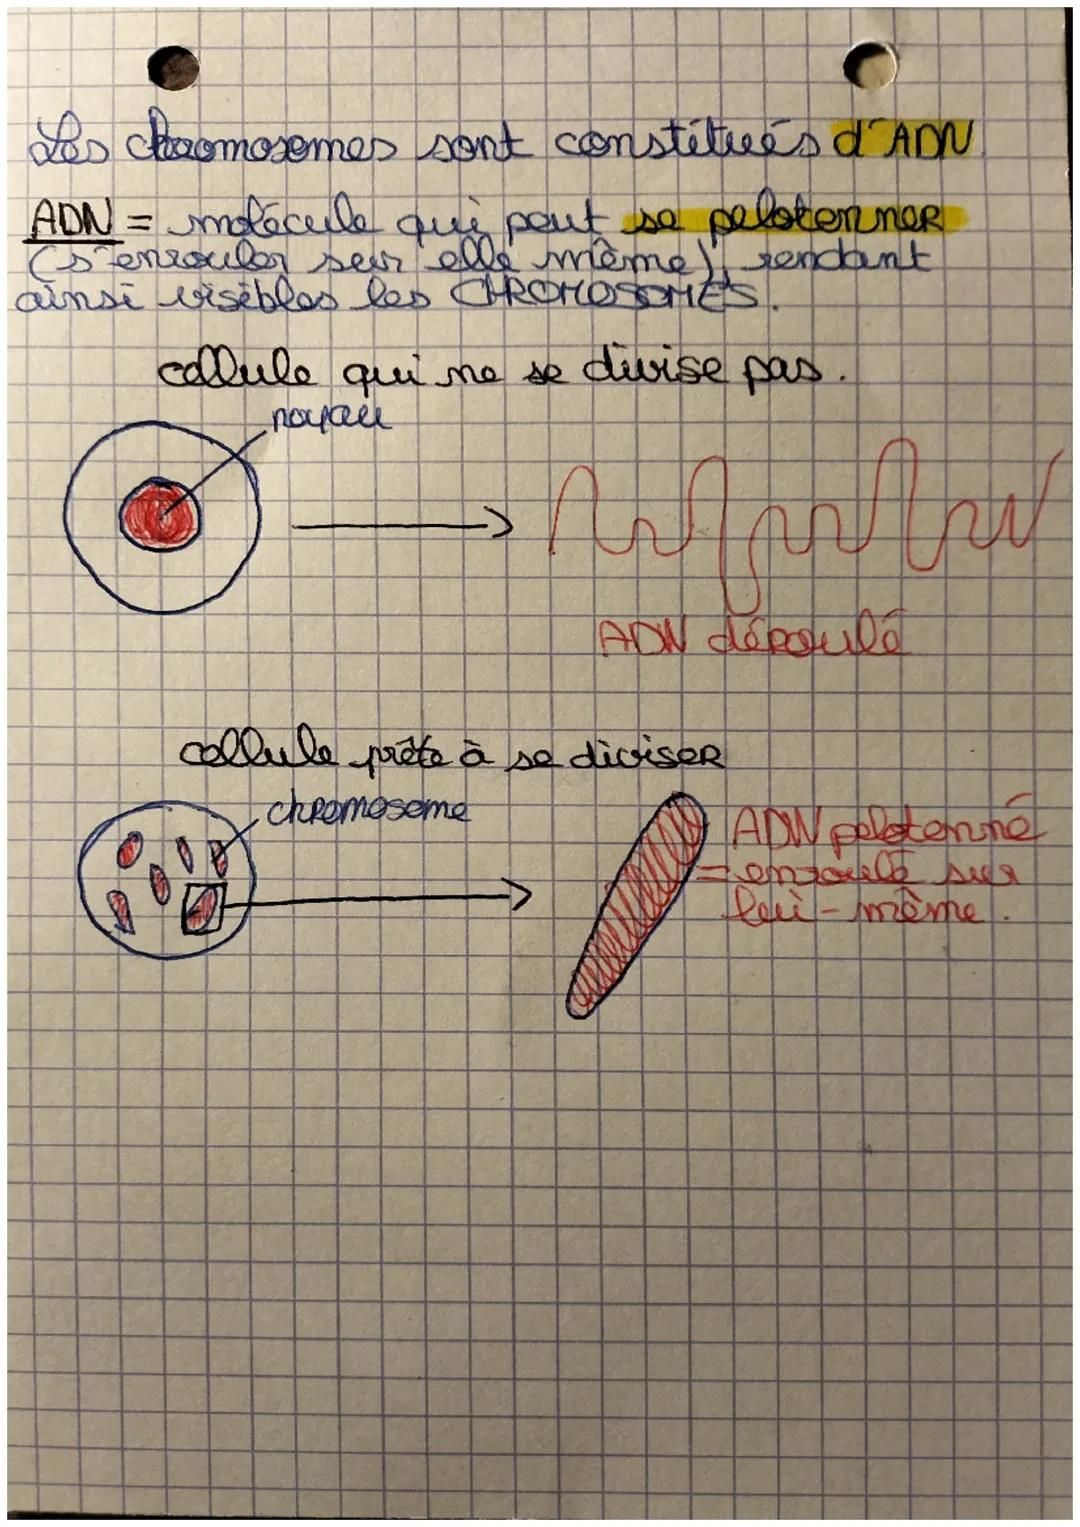 Les chromosomes sont constitués d'ADN.
ADN = molécule qui peut se pelotonner
(s'enrouler sur elle même), rendant
ainsi visibles les CHROMOSOMES.
cellule qui ne se divise pas.
noyau
ADN déroulé
cellule prête à se diviser
chromosome
ADN pelotonné
= enroulé sur
lui-même.